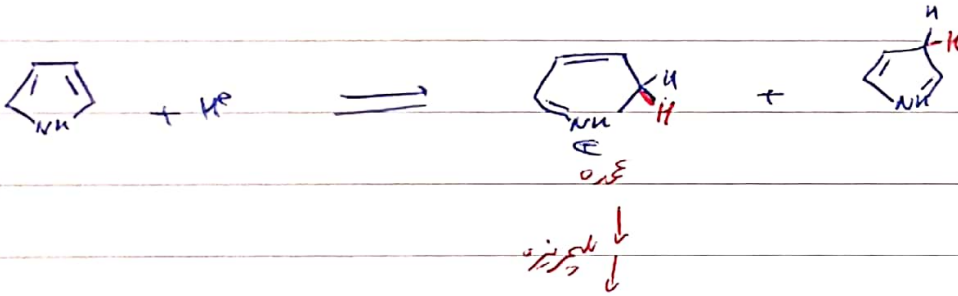 H
H
NH + H⊕ ⇌ NH H + NH
⊕
عمده
↓
پلیمریزه
↓